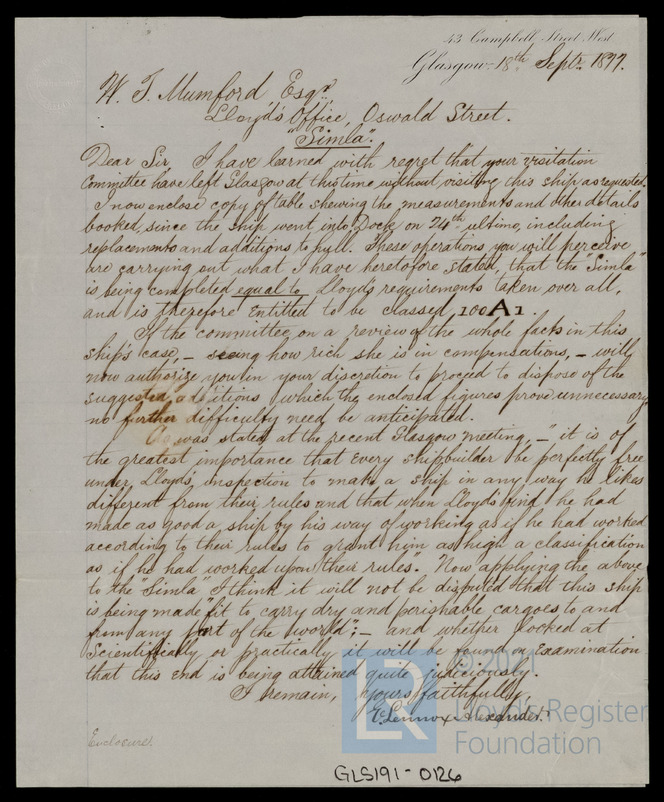 43 Campbell Street West
Glasgow 18th Septr. 1877.
W. T. Mumford Esqr
Lloyd's Office, Oswald Street.
"Simla".
Dear Sir, I have learned with regret that your visitation
Committee have left Glasgow at this time without visiting this ship as requested.
I now enclose copy of table shewing the measurements and other details
booked, since the ship went into Dock on 24th ultimo, including
replacements and additions to hull. These operations you will perceive
are carrying out what I have heretofore stated, that the "Simla"
is being completed equal to Lloyd's requirements taken over all,
and is therefore entitled to be classed, 100A1
If the committee on a review of the whole facts in this
ship's case, – seeing how rich she is in compensations, – will
now authorize you in your discretion to proceed to dispose of the
suggested additions, which the enclosed figures prove unnecessary,
no further difficulty need be anticipated.
As was stated at the recent Glasgow meeting, – "it is of
the greatest importance that every shipbuilder be perfectly free
under Lloyd's inspection to make a ship in any way he likes
different from their rules and that when Lloyd's find he had
made as good a ship by his way of working as if he had worked
according to their rules to grant him as high a classification
as if he had worked upon their rules. Now applying the above
to the "Simla" I think it will not be disputed that this ship
is being made "fit to carry dry and perishable cargoes to and
from any part of the world"; – and whether looked at
Scientifically or practically it will be found on examination
that this end is being attained quite judiciously.
I remain, yours faithfully,
Lennox Alexander.
Enclosure.
© 2021
LR
Lloyd's Register
Foundation
GLS191-0126